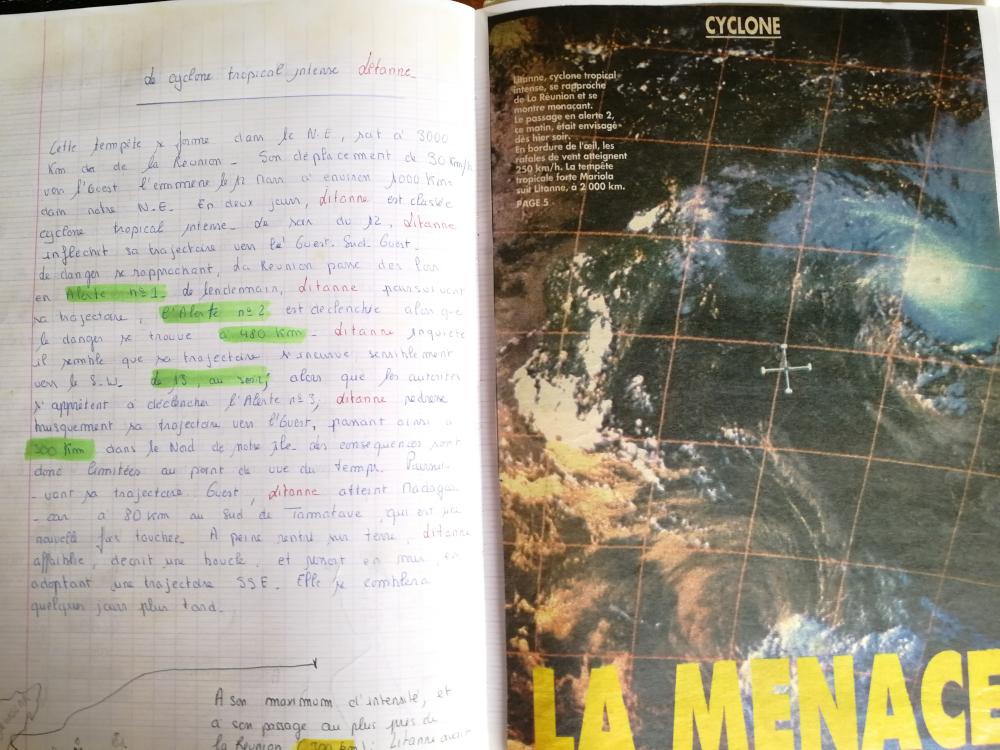 Le cyclone tropical intense Litanne
Cette tempête se forme dans le N.E, soit à 3000
Km de la Réunion - Son déplacement de 30 Km/h
vers l'Ouest l'emmène le 12 Mars à environ 1000 Km
dans notre N.E. En deux jours, Litanne est classée
cyclone tropical intense. Le soir du 12, Litanne
infléchit sa trajectoire vers l'Ouest. Sud. Ouest.
Le danger se rapprochant, La Réunion passe dès lors
en Alerte n°1. Le lendemain, Litanne poursuivant
sa trajectoire, l'Alerte n°2 est déclenchée alors que
le danger se trouve à 480 Km. Litanne inquiète
il semble que sa trajectoire s'incurve sensiblement
vers le S.W. Le 13, au soir, alors que les autorités
s'apprêtent à déclencher l'Alerte n°3, Litanne redresse
brusquement sa trajectoire vers l'Ouest, passant ainsi à
300 Km dans le Nord de notre île. Les conséquences sont
donc limitées au point de vue du temps. Poursui-
-vant sa trajectoire Ouest, Litanne atteint Madagas
-car à 80 Km au Sud de Tamatave, qui est une
nouvelle fois touchée. A peine rentré sur terre, Litanne
affaiblie, décrit une boucle, et ressort en mer, en
adoptant une trajectoire SSE. Elle se comblera
quelques jours plus tard.
A son maximum d'intensité, et
à son passage au plus près de
la Réunion (300 km): Litanne avait
CYCLONE
Litanne, cyclone tropical
intense, se rapproche
de La Réunion et se
montre menaçant.
Le passage en alerte 2,
ce matin, était envisagé
dès hier soir.
En bordure de l'œil, les
rafales de vent atteignent
250 km/h. La tempête
tropicale forte Mariola
suit Litanne, à 2 000 km.
PAGE 5
LA MENACE